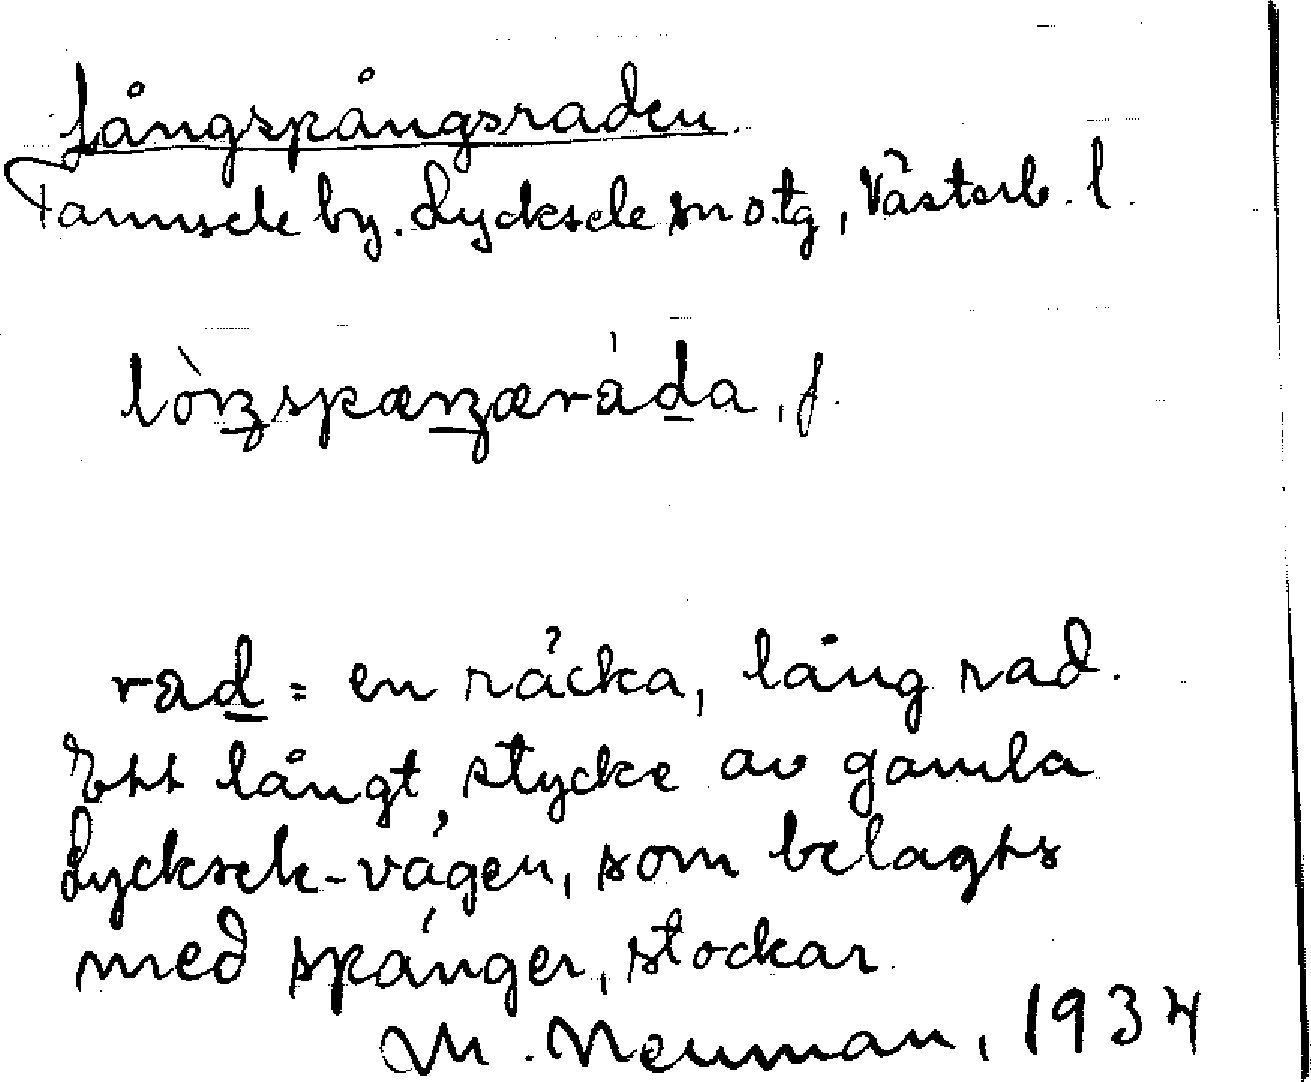 Långspångsraden
Tannsele by. Lycksele sn o. tg, Västerb. l.
lòŋspæŋæráda, f.
rad = en räcka, lång rad.
Ett långt, stycke av gamla
Lycksele-vägen, som belagts
med spänger, stockar.
M. Neuman, 1934